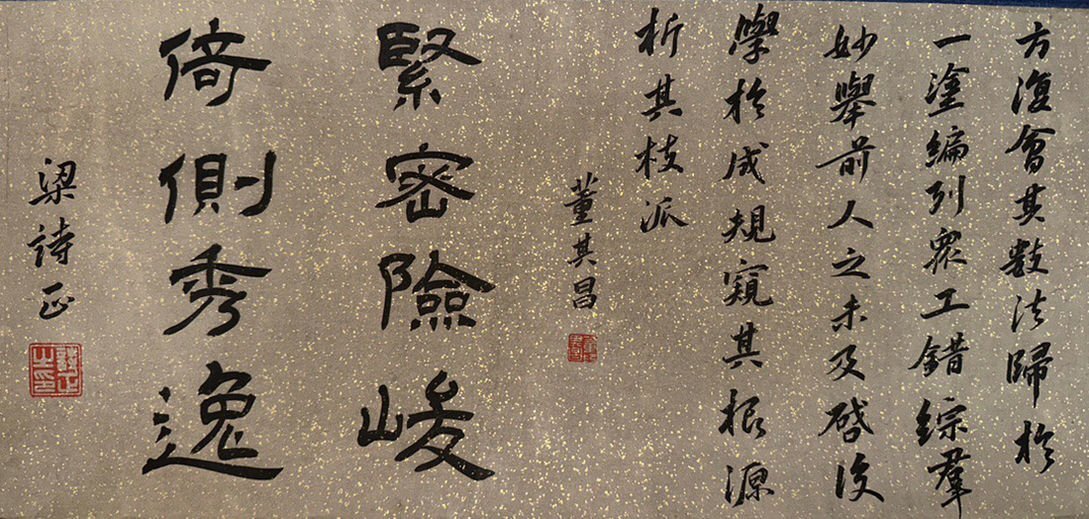 方復會其數法歸於
一塗編列眾工錯綜羣
妙舉前人之未及啓後
學於成規窺其根源
析其枝派
董其昌
緊密險峻
倚側秀逸
梁詩正
詩正之印